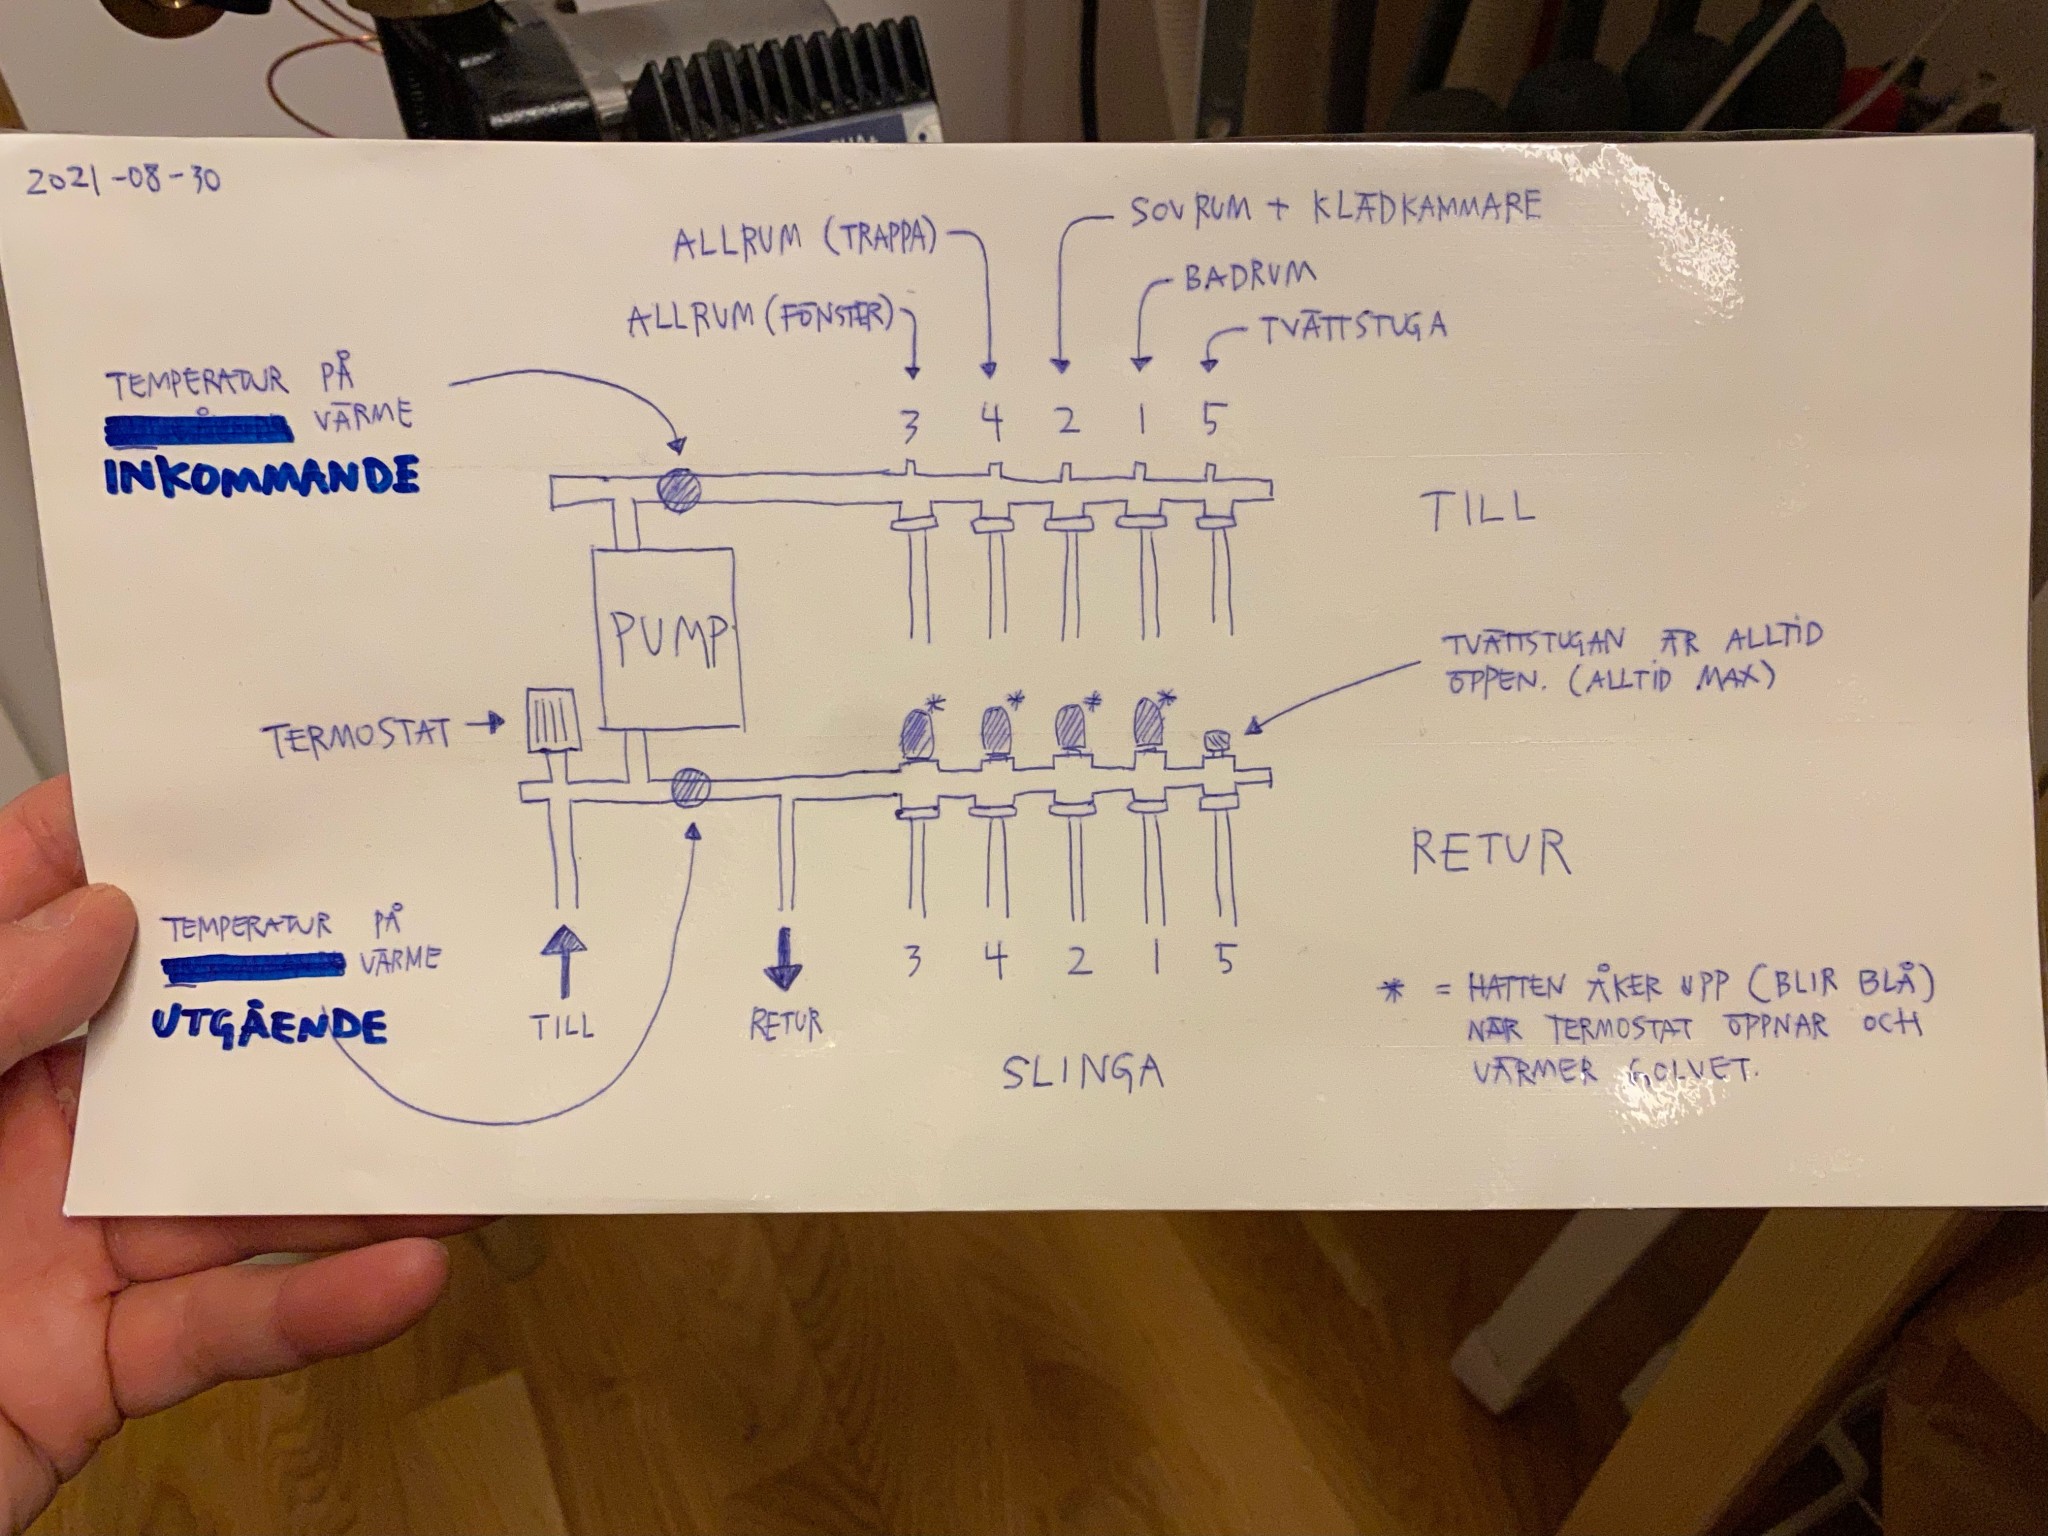 2021-08-30
SOVRUM + KLÄDKAMMARE
ALLRUM (TRAPPA)
BADRUM
ALLRUM (FÖNSTER)
TVÄTTSTUGA
TEMPERATUR PÅ
VÄRME
INKOMMANDE
3 4 2 1 5
TILL
PUMP
TVÄTTSTUGAN ÄR ALLTID
ÖPPEN. (ALLTID MAX)
TERMOSTAT
* * * *
RETUR
TEMPERATUR PÅ
VÄRME
UTGÅENDE
TILL
RETUR
3 4 2 1 5
SLINGA
* = HATTEN ÅKER UPP (BLIR BLÅ)
NÄR TERMOSTAT ÖPPNAR OCH
VÄRMER GOLVET.